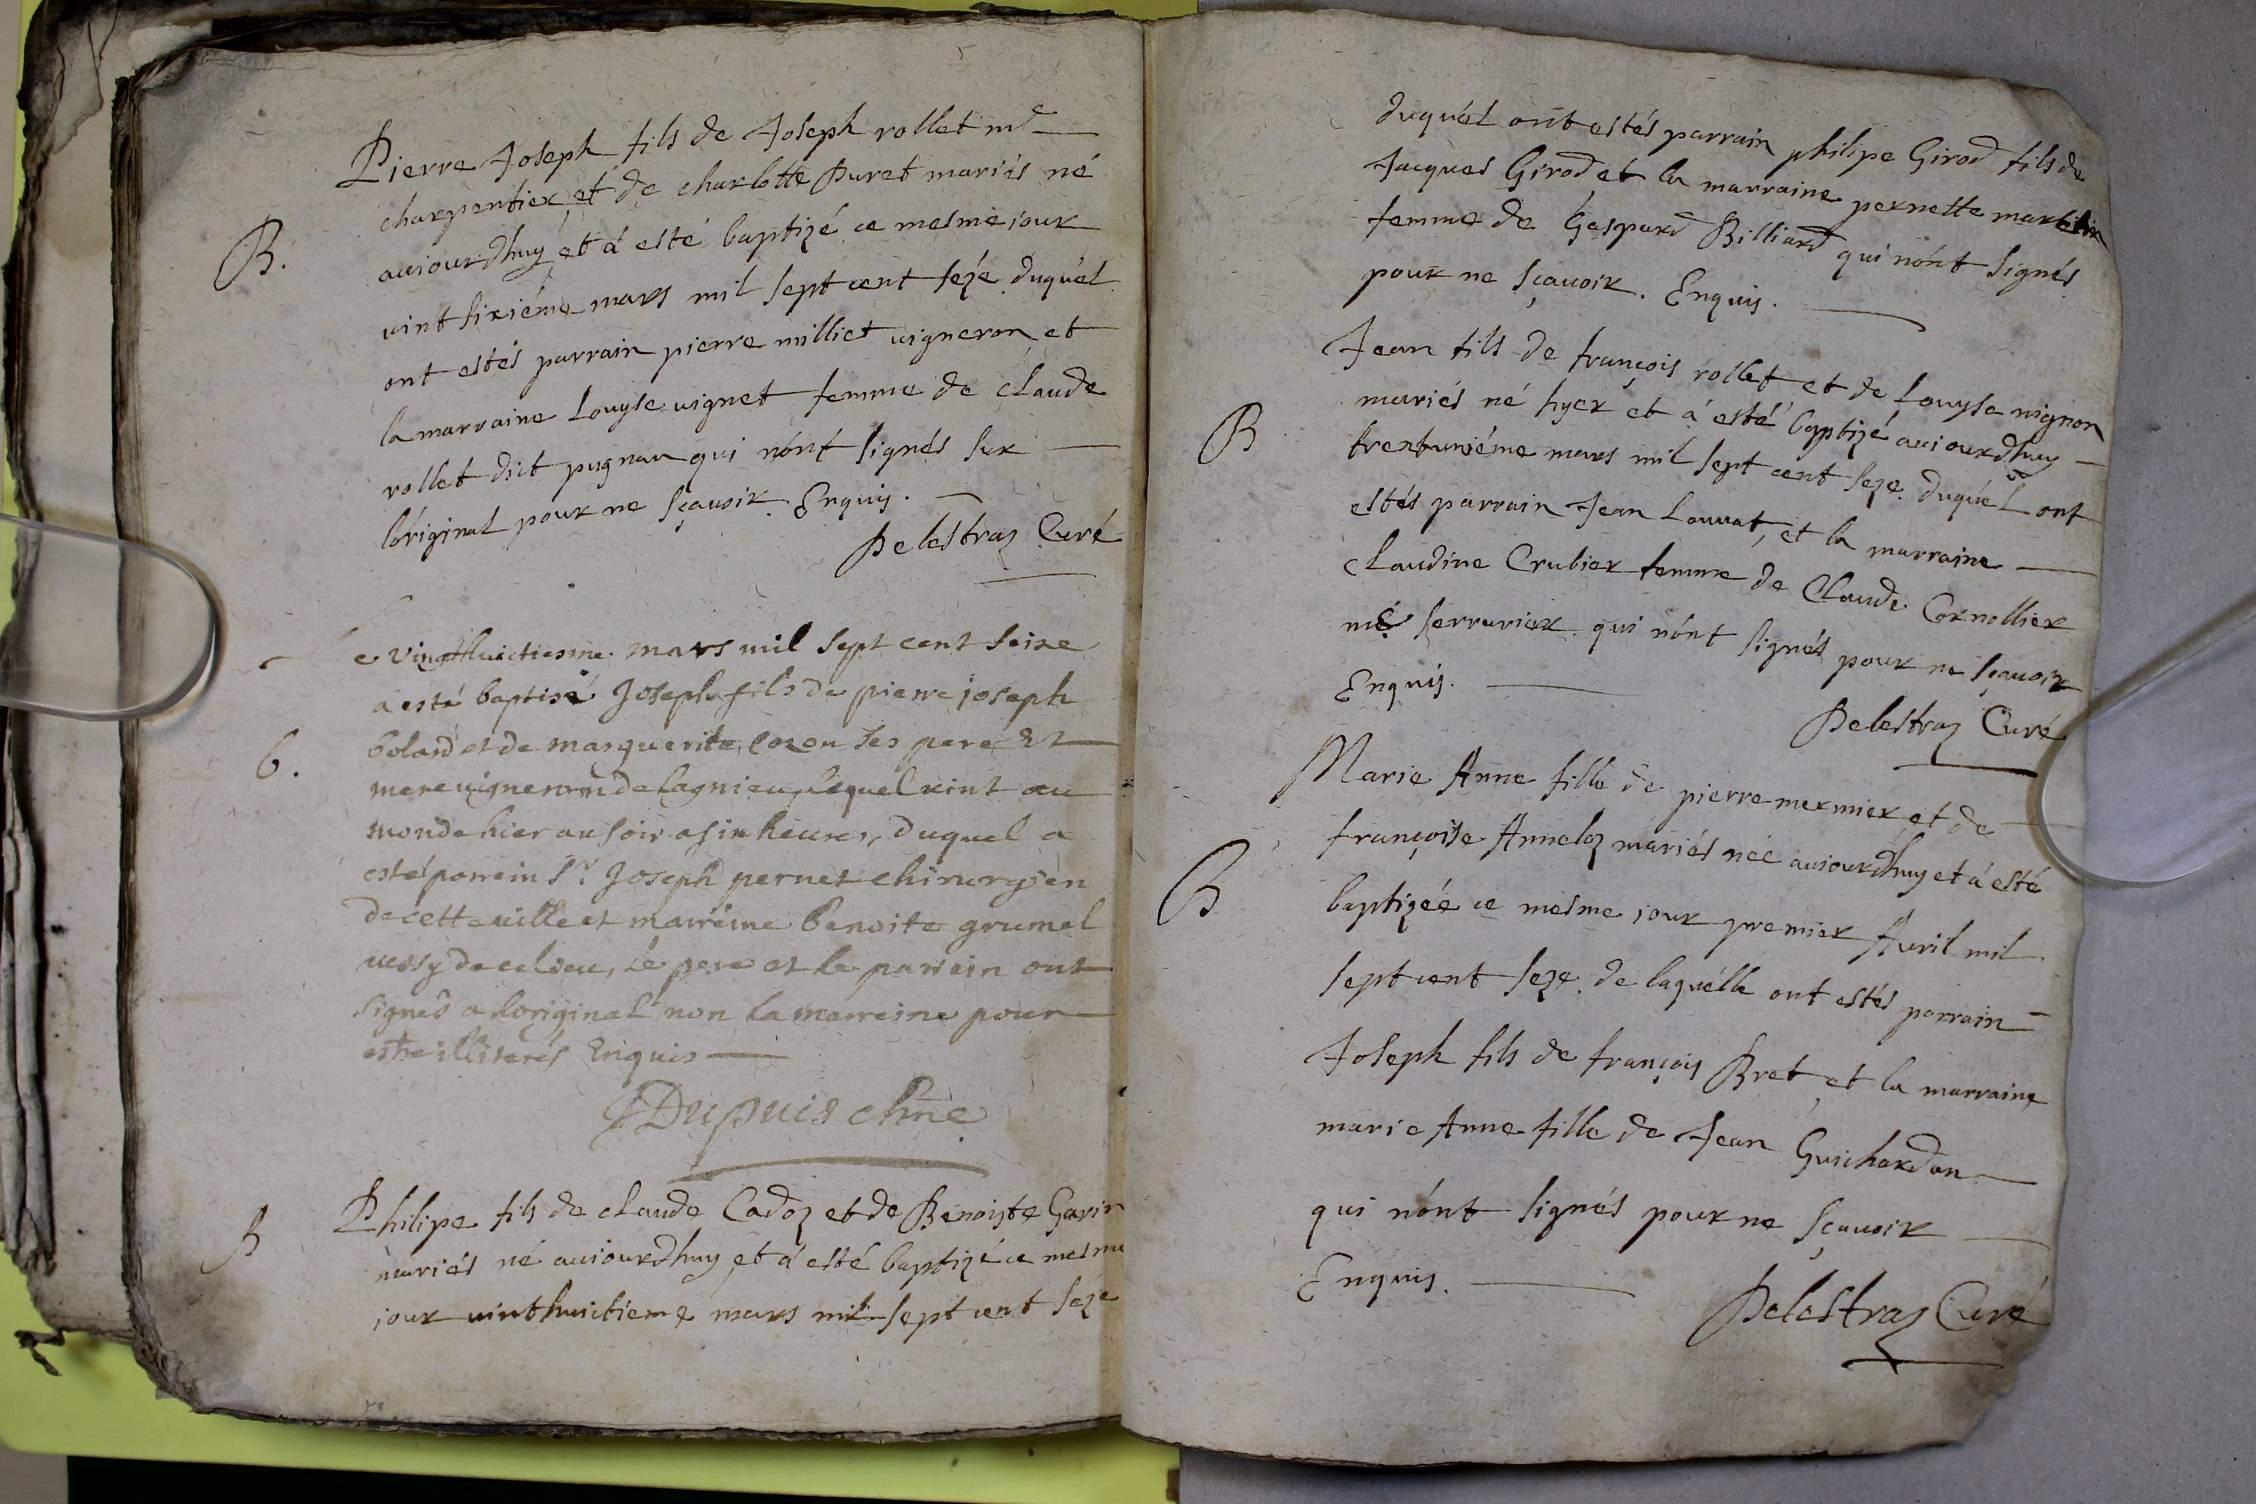 Pierre Joseph fils de Joseph rollet mᵉ
charpentier et de charlotte Puret mariés né
auiourdhuy et á esté baptizé ce mesme iour
B.
vint sixiéme mars mil sept cent séze duquél
ont estés parrain pierre milliet vigneron et
la marraine Louyse vignet femme de claude
rollet dict pugnau qui nónt signés sur
lóriginal pour ne sçauoir. Enquis.
Delestraz Curé
le vingthuictiesme mars mil sept cent seize
a esté baptisé Joseph fils de pierre joseph
bolard et de marguerite cozon ses pere Et
B.
mere vigneron de Lagnieu lequel vint au
monde hier au soir a six heures, duquel a
esté parrein Sʳ. Joseph pernet chirurgien
de cette ville et marreine benoite grumel
aussy de ce lieu, le pere et le parrein ont
signés a loriginal non la marreine pour
estre illiterés Enquis
Dupuis chne
B
Philipe fils de claude Cadoz et de Benoiste Garin
mariés né auiourdhuy et á esté baptizé ce mesme
iour vinthuictieme mars mil sept cent séze
duquél ont estés parrain philipe Girod fils de
Jacques Girod et la marraine pernette martelin
femme de Gaspard Billiard qui nónt signés
pour ne sçauoir. Enquis.
Jean fils de françois rollet et de Louyse nignon
mariés né hyer et á esté baptizé auiourdhuy
B
trentuniéme mars mil sept cent seze duquél ont
estés parrain Jean Louuat, et la marraine
claudine Crubier femme de Claude Cornollier
mᵉ serrurier qui nónt signés pour ne sçauoir
Enquis.
Delestraz Curé
Marie Anne fille de pierre mermier et de
françoise Anneloz mariés néé auiourdhuy et á esté
B
baptizéé ce mesme iour premier Auril mil
sept cent séze de laquélle ont estés parrain
Joseph fils de françois Bret et la marraine
marie Anne fille de Jean Guichardon
qui nónt signés pour ne sçauoir
Enquis.
Delestraz Curé